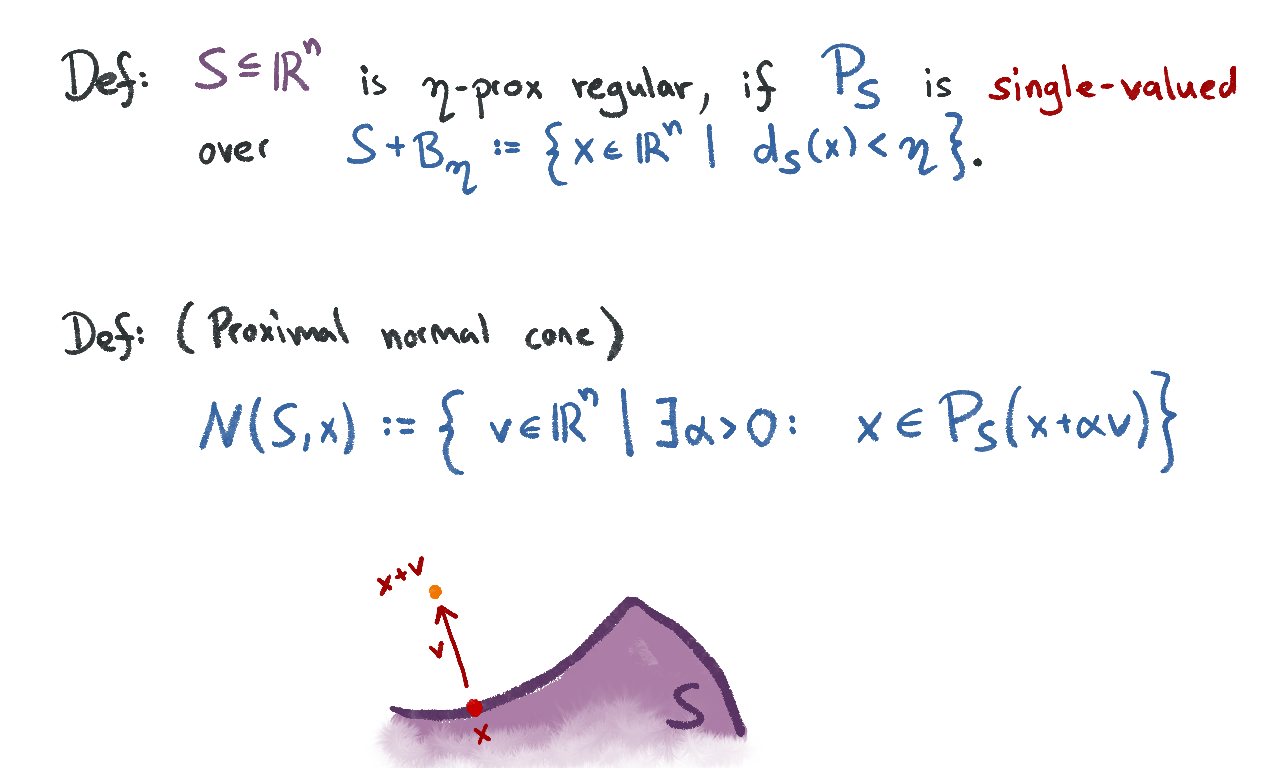 Def: S ⊆ ℝⁿ is η-prox regular, if P_S is single-valued
over S + B_η := { x ∈ ℝⁿ | d_S(x) < η }.
Def: (Proximal normal cone)
N(S,x) := { v ∈ ℝⁿ | ∃α > 0: x ∈ P_S(x+αv) }
x+v
v
S
x